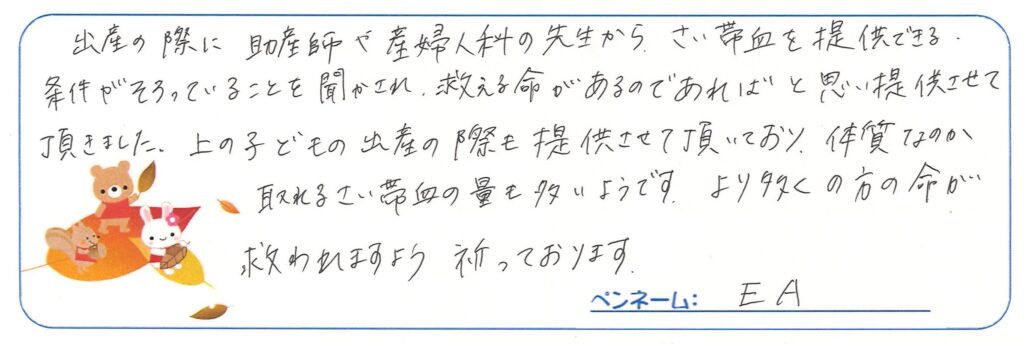 出産の際に 助産師や産婦人科の先生から、さい帯血を提供できる
条件がそろっていることを聞かされ、救える命があるのであればと思い提供させて
頂きました。上の子どもの出産の際も提供させて頂いており、体質なのか
取れるさい帯血の量も多いようです。より多くの方の命が
救われますよう 祈っております。
ペンネーム: EA